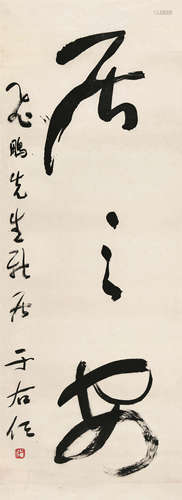 居之安
飞鹏先生新居
于右任